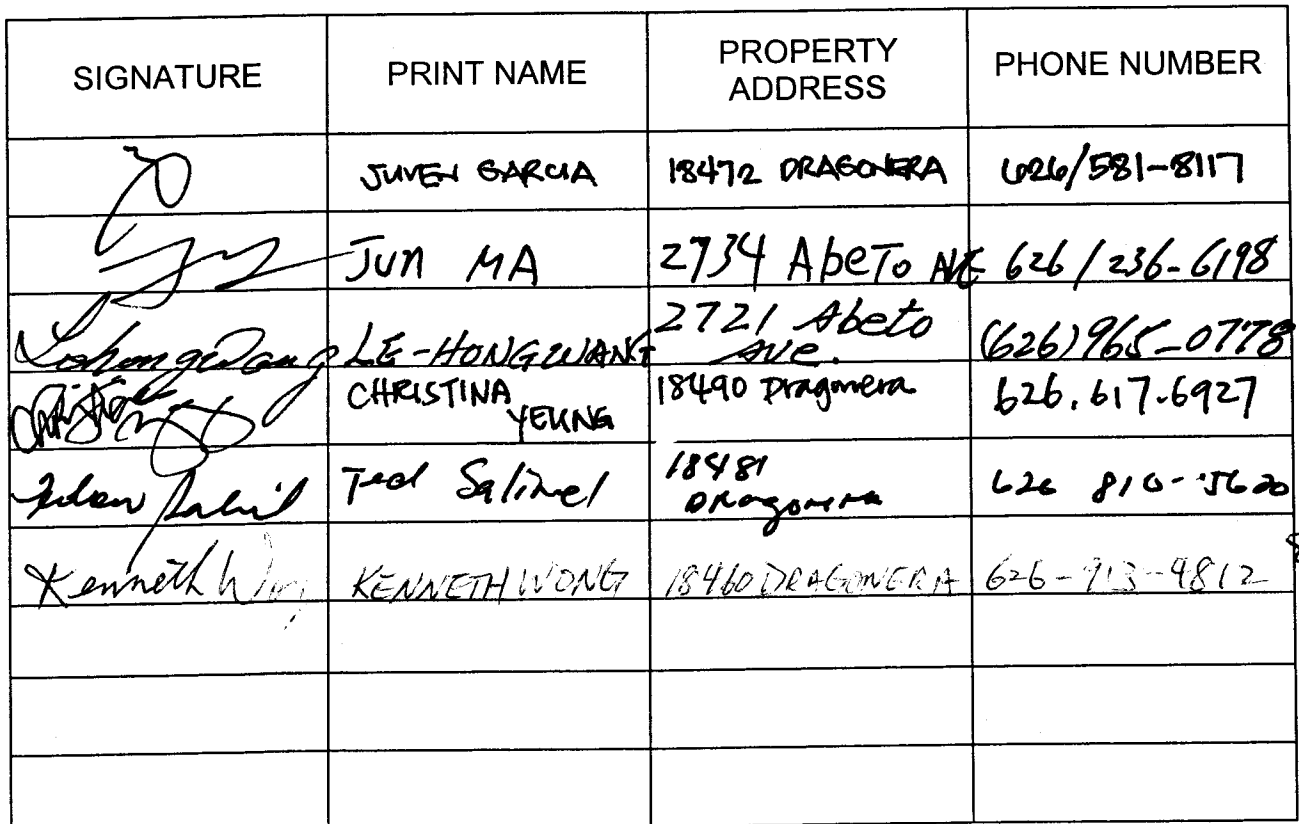 SIGNATURE PRINT NAME PROPERTY ADDRESS PHONE NUMBER
JUVEN GARCIA 18472 DRAGONERA 626/581-8117
JUN MA 2734 Abeto AVE 626/236-6198
LE-HONG WANG 2721 Abeto Ave. (626) 965-0778
CHRISTINA YEUNG 18490 Dragonera 626.617.6927
Ted 18481 Dragonera 626 810-5620
Kenneth Wong KENNETH WONG 18460 DRAGONERA 626-913-9812